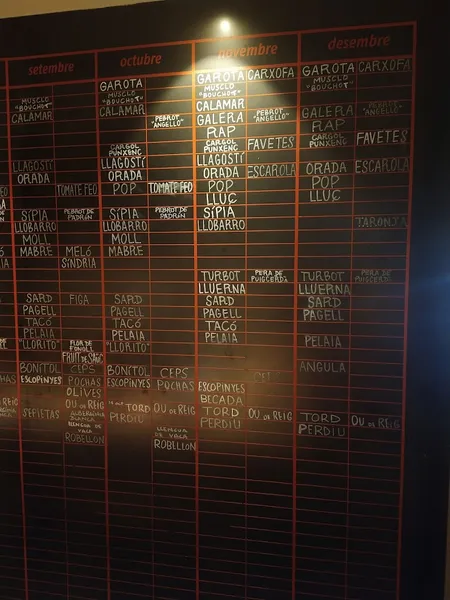 setembre octubre novembre desembre
GAROTA GAROTA CARXOFA GAROTA CARXOFA
MUSCLO "BOUCHOT" MUSCLO "BOUCHOT" MUSCLO "BOUCHOT" MUSCLO "BOUCHOT"
CALAMAR CALAMAR CALAMAR
PEBROT "ANGELLO" GALERA PEBROT "ANGELLO" GALERA
RAP RAP
CARGOL PUNXENC CARGOL PUNXENC FAVETES CARGOL PUNXENC FAVETES
LLAGOSTÍ LLAGOSTÍ LLAGOSTÍ
ORADA ORADA ORADA ESCAROLA ORADA ESCAROLA
TOMATE FEO POP TOMATE FEO POP POP
LLUÇ LLUÇ
SÍPIA PEBROT DE PADRÓN SÍPIA PEBROT DE PADRÓN SÍPIA
LLOBARRO LLOBARRO LLOBARRO TARONJA
MOLL MOLL
MABRE MELÓ MABRE
SÍNDRIA
TURBOT PERA DE PUIGCERDÀ TURBOT PERA DE PUIGCERDÀ
LLUERNA LLUERNA
SARD FIGA SARD SARD SARD
PAGELL PAGELL PAGELL PAGELL
TACÓ TACÓ TACÓ
PELAIA PELAIA PELAIA PELAIA
"LLORITO" "LLORITO"
BONÍTOL CEPS BONÍTOL CEPS ANGULA
ESCOPINYES POCHAS ESCOPINYES POCHAS ESCOPINYES
OLIVES BECADA
SEPIETES OU DE REIG TORD OU DE REIG TORD OU DE REIG TORD OU DE REIG
PERDIU PERDIU PERDIU
LLENGUA DE VACA LLENGUA DE VACA
ROBELLON ROBELLON